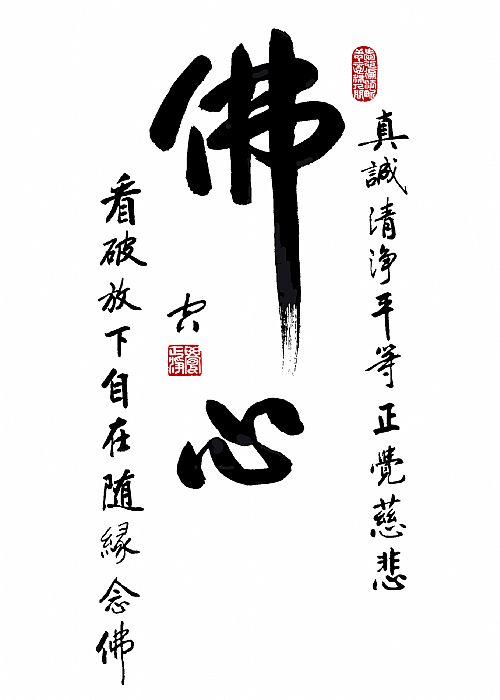 真誠清淨平等正覺慈悲
佛心
看破放下自在随緣念佛